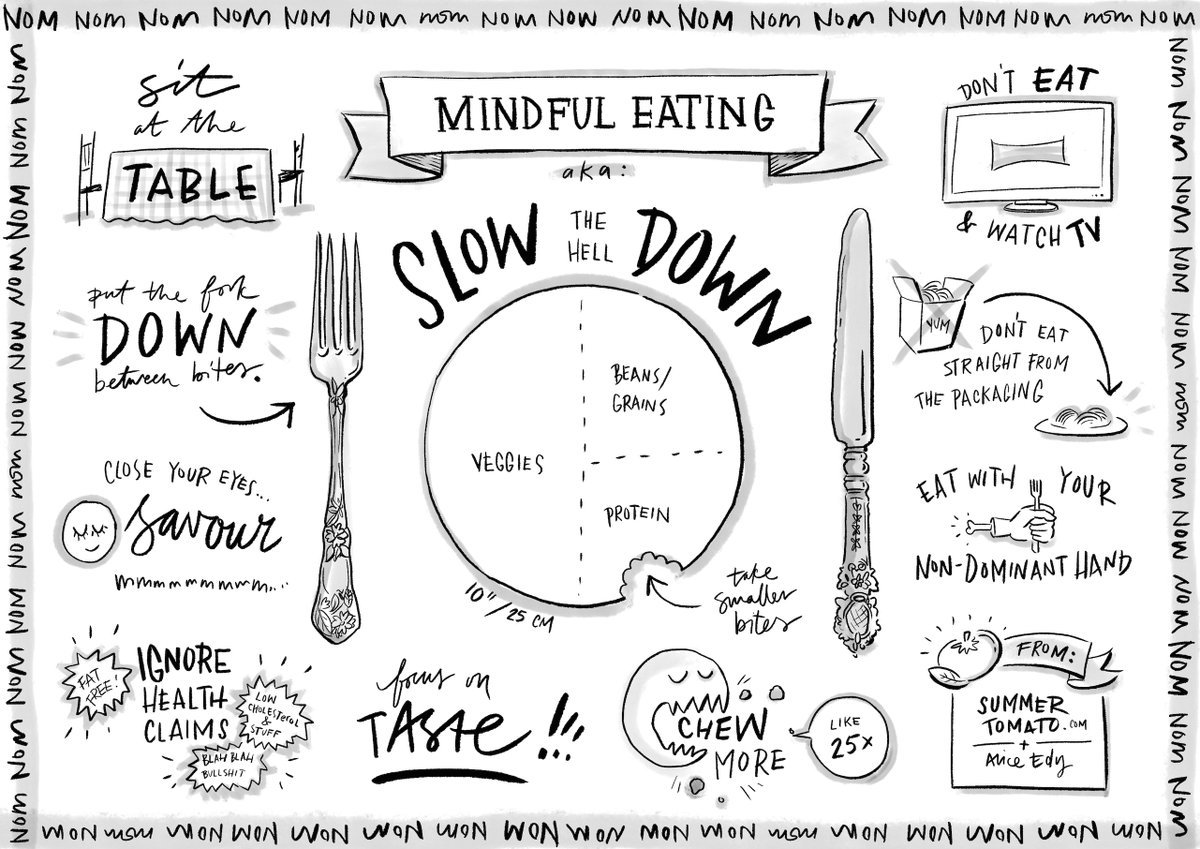 NOM NOM NOM NOM NOM NOM nom NOM NOM NOM NOM NOM NOM NOM NOM NOM nom NOM
MINDFUL EATING
aka:
SLOW THE HELL DOWN
sit
at the
TABLE
put the fork
DOWN
between bites.
CLOSE YOUR EYES...
savour
mmmmmmmmm...
FAT
FREE!
IGNORE
HEALTH
CLAIMS
LOW
CHOLESTEROL
&
STUFF
BLAH BLAH
BULLSHIT
VEGGIES
BEANS/
GRAINS
PROTEIN
10"/25 CM
take
smaller
bites
focus on
TASTE!!!
CHEW
MORE
LIKE
25x
DON'T EAT
& WATCH TV
YUM
DON'T EAT
STRAIGHT FROM
THE PACKAGING
EAT WITH YOUR
NON-DOMINANT HAND
FROM:
SUMMER
TOMATO.COM
+
Alice Edy
NOM NOM NOM NOM NOM nom NOM NOM NOM NOM NOM NOM NOM
NOM NOM NOM NOM NOM nom NOM NOM NOM NOM NOM NOM NOM
NOM NOM NOM NOM NOM nom NOM NOM NOM NOM NOM NOM NOM NOM NOM nom NOM